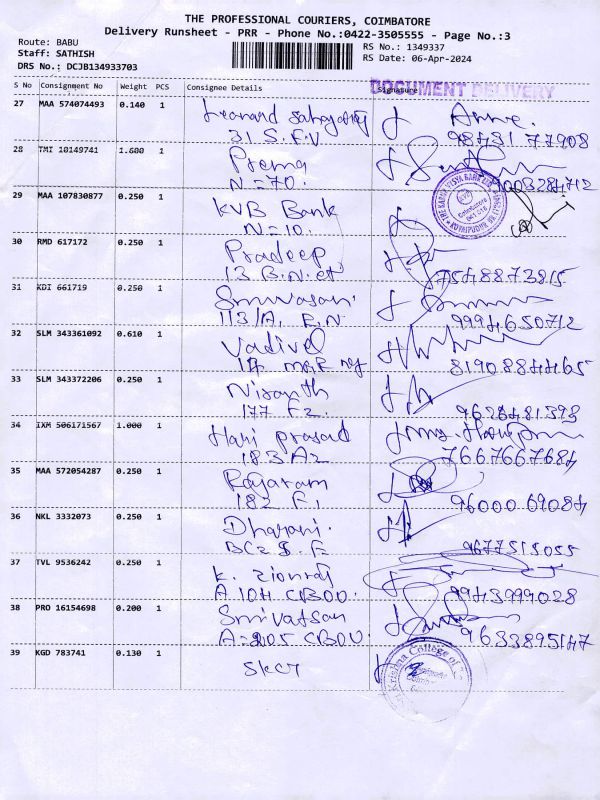 THE PROFESSIONAL COURIERS, COIMBATORE
Delivery Runsheet - PRR - Phone No.:0422-3505555 - Page No.:3
Route: BABU
Staff: SATHISH
DRS No.: DCJB134933703
RS No.: 1349337
RS Date: 06-Apr-2024
DOCUMENT DELIVERY
S No Consignment No Weight PCS Consignee Details Signature
27 MAA 574074493 0.140 1
31 S.F.V 98431 77908
28 TMI 10149741 1.600 1 Prema
N=70.
29 MAA 107830877 0.250 1 KVB Bank
N=10.
30 RMD 617172 0.250 1 Pradeep
13 B.N.et 7548873815
31 KDI 661719 0.250 1 Srinivasan
113/A, E.N 9994650712
32 SLM 343361092 0.610 1 Vadivel
8190884465
33 SLM 343372206 0.250 1 Nisanth
177 F2. 9628481393
34 IXM 506171567 1.000 1 Hari prasad
183 A2 7667667684
35 MAA 572054287 0.250 1 Rajaram
182 F1 96000 69084
36 NKL 3332073 0.250 1 Dharani.
9677515055
37 TVL 9536242 0.250 1 K.
A 104 CBOO. 9943999028
38 PRO 16154698 0.200 1 Srivatsan
A=205 CBOO. 9633895147
39 KGD 783741 0.130 1 Skcr